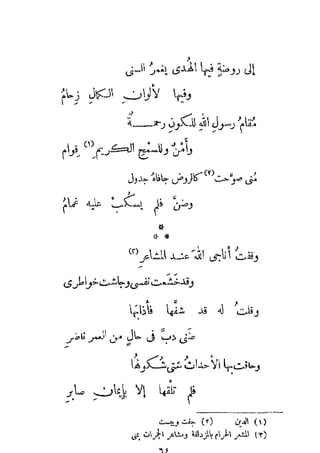 إلى روضةٍ فيها الهُدى يغمرُ السنى
وفيها لألوانِ الكمالِ زحامُ
مُقامُ رسولِ اللهِ للكونِ رحمـــــةٌ
وأمنٌ وللسمحِ الكريمِ(١) قوام
مُنى صوّحت(٢) كالروض جافاهُ جدول
وضنَّ فلم يسكُبْ عليه غمامُ
*
* *
وقفتُ أناجى اللهَ عند المشاعرِ(٣)
وقد خشعت نفسى وجاشت خواطرى
وقلتُ له قد شفَّها فأذابها
ضنى دبَّ فى حالٍ من العمر ناضرِ
وحاقت بها الأحداثُ شتى شكولُها
فلم تلقها إلا بإيمانِ صابرِ
(١) الدين (٢) جفت ويبست
(٣) المشعر الحرام بالمزدلفة ومشاعر الجمرات بمنى
٦٤